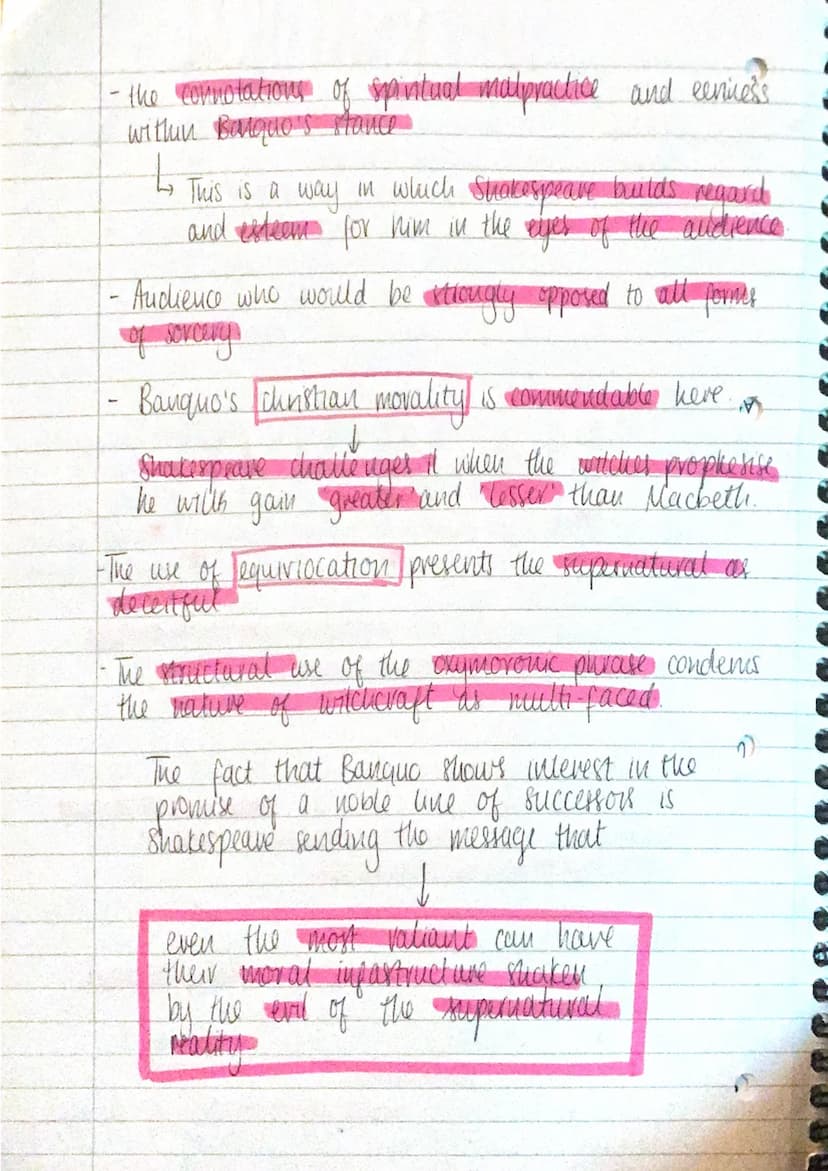 - the connotations of spiritual malpractice and eeriness
within Banquo's stance
↳ This is a way in which Shakespeare builds regard
and esteem for him in the eyes of the audience.
- Audience who would be strongly opposed to all forms
of sorcery
- Banquo's christian morality is commendable here.
↓
Shakespeare challenges it when the witches prophesise
he will gain 'greater' and 'lesser' than Macbeth.
- The use of equivocation presents the supernatural as
deceitful
- The structural use of the oxymoronic phrase condems
the nature of witchcraft as multi-faced.
The fact that Banquo shows interest in the
promise of a noble line of successors is
Shakespeare sending the message that
↓
even the most valiant can have
their moral infastructure shaken
by the evil of the supernatural
reality